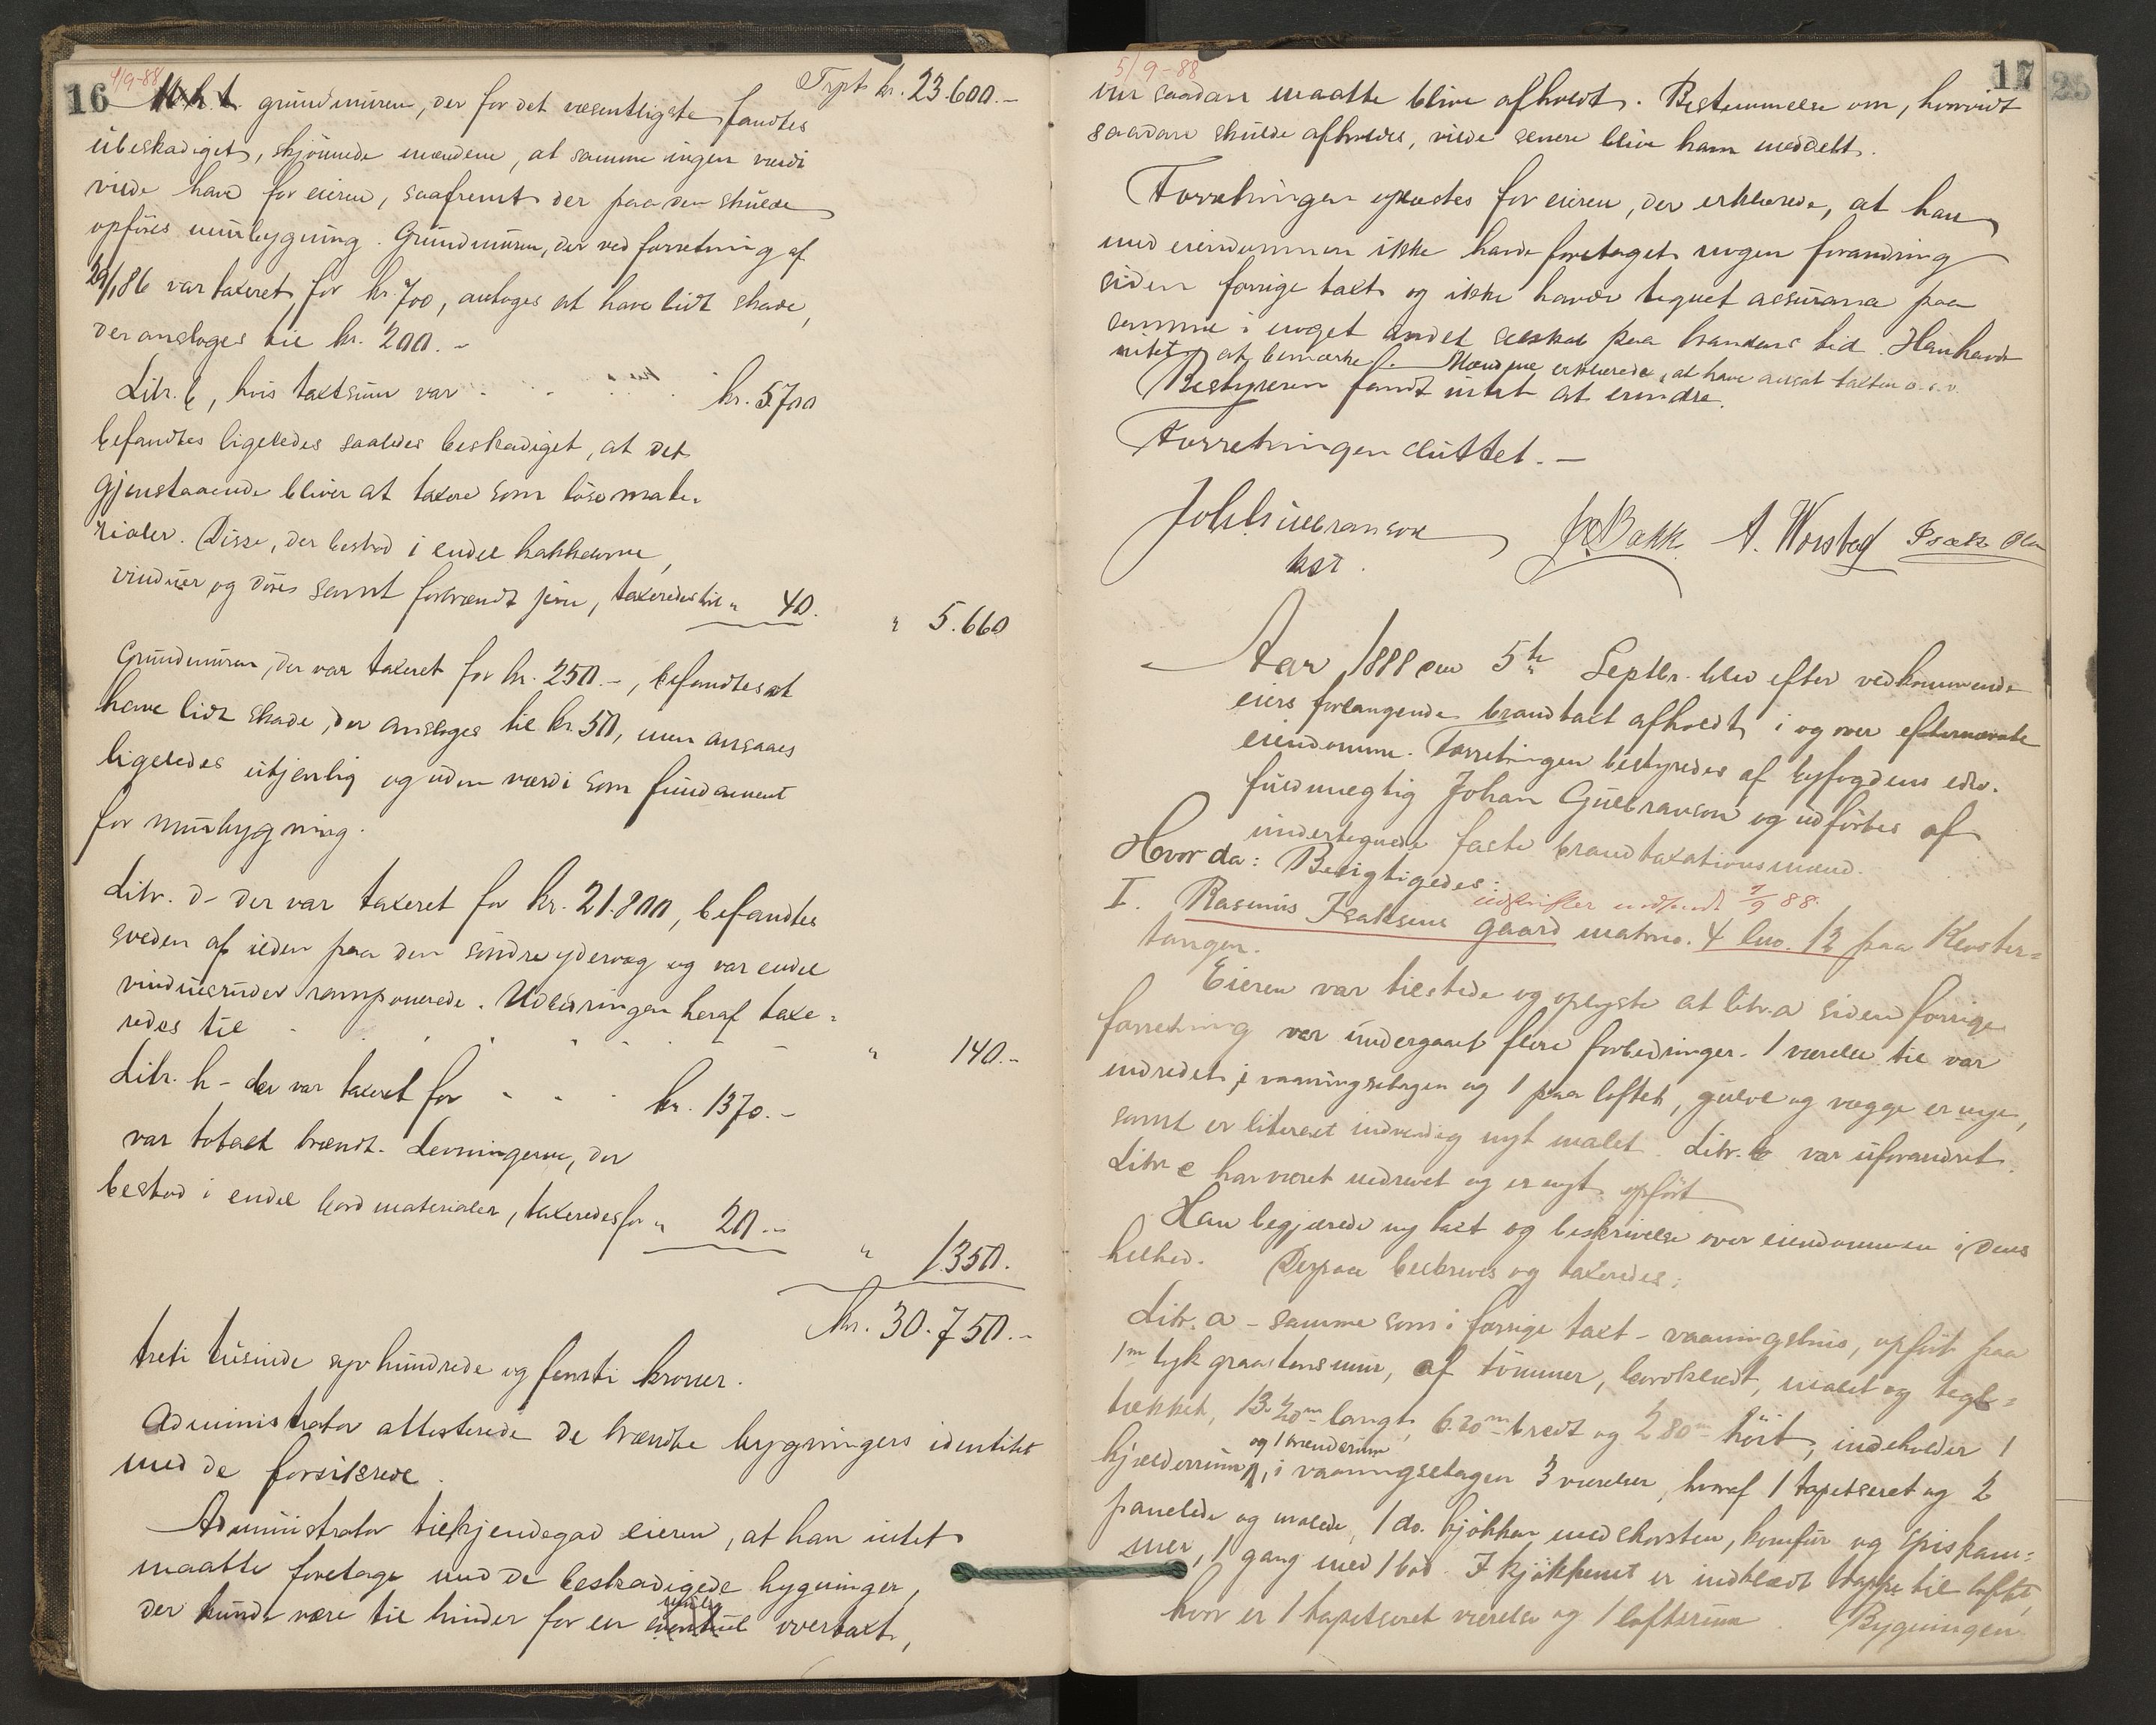 16
4/9-88
Trpt kr. 23.600.-
M.h.t. grundmuren, der for det væsentligste fandtes
übeskadiget, skjønnede mændene, at samme ingen værdi
vilde have for eieren, saafremt der paa den skulde
opføres murbygning. Grundmuren, der ved forretning af
29/1 86 var taxeret for kr. 700, antoges at have lidt skade,
der ansloges til kr. 200.-
Litr. b, hvis taxtsum var . . . . . kr. 5700
befandtes ligeledes saaledes beskadiget, at det
gjenstaaende bliver at taxere som løse mate-
rialer. Disse, der bestod i endel kakkelovne,
vinduer og døre samt forbrændt jern, taxeredes til " 40.
" 5.660
Grundmuren, der var taxeret for kr. 250.-, befandtes at
have lidt skade, der ansloges til kr. 50, men ansaaes
ligeledes utjenlig og uden værdi som fundament
for murbygning.
Litr. d- der var taxeret for kr. 21.800, befandtes
sveden af ilden paa den søndre ydervæg og var endel
vinduesruder ramponerede. Udbedringen heraf taxe-
redes til . . . . . . " 140.-
Litr. h- der var taxeret for - - - kr. 1370.-
var totalt brændt. Levningerne, der
bestod i endel bordmaterialer, taxeredes for " 20.-
" 1.350.
Kr. 30.750.-
treti tusinde syv hundrede og femti kroner.
Administrator attesterede de brændte bygningers identitet
med de forsikrede.
Administrator tilkjendegav eieren, at han intet
maatte foretage med de beskadigede bygninger,
der kunde være til hinder for en eventuel overtaxt,
5/9-88
17
25
om saadan maatte blive afholdt. Bestemmelse om, hvorvidt
saadan skulde afholdes, vilde senere blive ham meddelt.
Forretningen oplæstes for eieren, der erklærede, at han
med eiendommen ikke havde foretaget nogen forandring
siden forrige taxt og ikke havde tegnet assurance paa
samme i noget andet selskab paa brandens tid. Han havde
intet at bemærke. Mændene erklærede, at have ansat taxten o.s.v.
Bestyreren fandt intet at erindre.
Forretningen sluttet.-
Joh. Gulbranson
kst.
A. Worsted
Isak
Aar 1888 den 5te Septbr. blev efter vedkommende
eiers forlangende brandtaxt afholdt i og over efternævnte
eiendomme. Forretningen bestyredes af byfogdens edsv.
fuldmegtig Johan Gulbranson og udførtes af
undertegnede faste brandtaxationsmænd.
Hvor da: Besigtigedes:
udskrifter udsendt 7/9 88.
I. Rasmus Isaksens gaard matrno. 4 lno. 12 paa Kloster-
tangen.
Eieren var tilstede og oplyste at litr. a siden forrige
forretning var undergaaet flere forbedringer. 1 værelse til var
indredet i vaaningsetagen og 1 paa loftet, gulve og vægge er nye,
samt er literaet indvendig nyt malet. Litr. b var uforandret.
Litr c har været nedrevet og er nyt opført
Han begjærede ny taxt og beskrivelse over eiendommen i dens
helhed. Derpaa beskreves og taxeredes:
Litr. a - samme som i forrige taxt - vaaningshus, opført paa
1m tyk graastensmur, af tømmer, bordklædt, malet og tegl-
tækket, 13.20m langt, 6.20m bredt og 2.80m høit, indeholder 1
kjælderrum og 1 brænderum, i vaaningsetagen 3 værelser, hvoraf 1 tapetseret og 2
panelede og malede, 1 do. kjøkken med skorsten, komfur og spiskam-
mer, 1 gang med 1 bod. I kjøkkenet er indklædt trappe til loftet,
hvor er 1 tapetseret værelse og 1 loftsrum. Bygningen